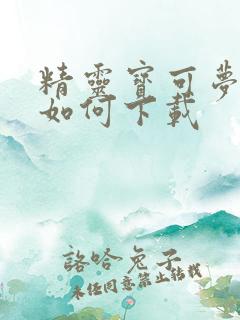 精靈寶可夢
如何下載
諮哈兔子
未经同意禁止转载